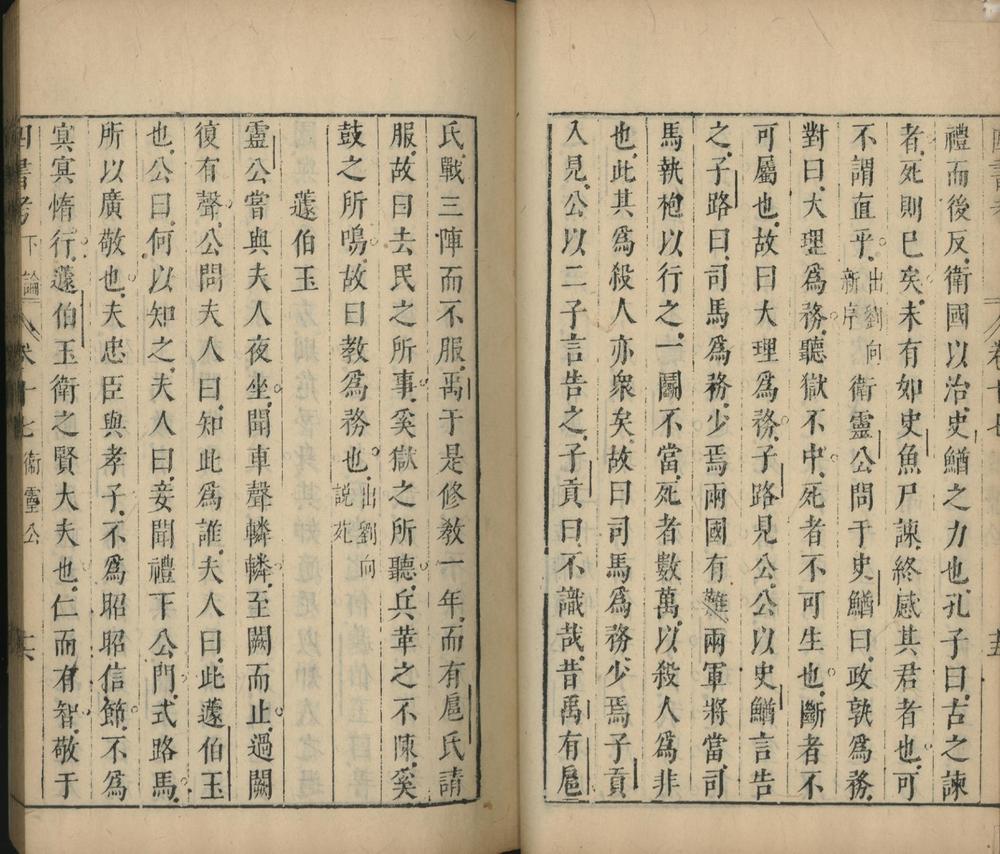 禮而後反衛國以治史鰌之力也孔子曰古之諫
者死則已矣未有如史魚尸諫終感其君者也可
不謂直乎出劉向新序 衛靈公問于史鰌曰政孰爲務
對曰大理爲務聽獄不中死者不可生也斷者不
可屬也故曰大理爲務子路見公公以史鰌言告
之子路曰司馬爲務少焉兩國有難兩軍將當司
馬執枹以行之一鬬不當死者數萬以殺人爲非
也此其爲殺人亦衆矣故曰司馬爲務少焉子貢
入見公以二子言告之子貢曰不識哉昔禹有扈
氏戰三陣而不服禹于是修教一年而有扈氏請
服故曰去民之所事奚獄之所聽兵革之不陳奚
鼓之所鳴故曰教爲務也出劉向說苑
蘧伯玉
靈公嘗與夫人夜坐聞車聲轔轔至闕而止過闕
復有聲公問夫人曰知此爲誰夫人曰此蘧伯玉
也公曰何以知之夫人曰妾聞禮下公門式路馬
所以廣敬也夫忠臣與孝子不爲昭昭信節不爲
冥冥惰行蘧伯玉衛之賢大夫也仁而有智敬于
四書考 下論 卷十七 衛靈公 十六